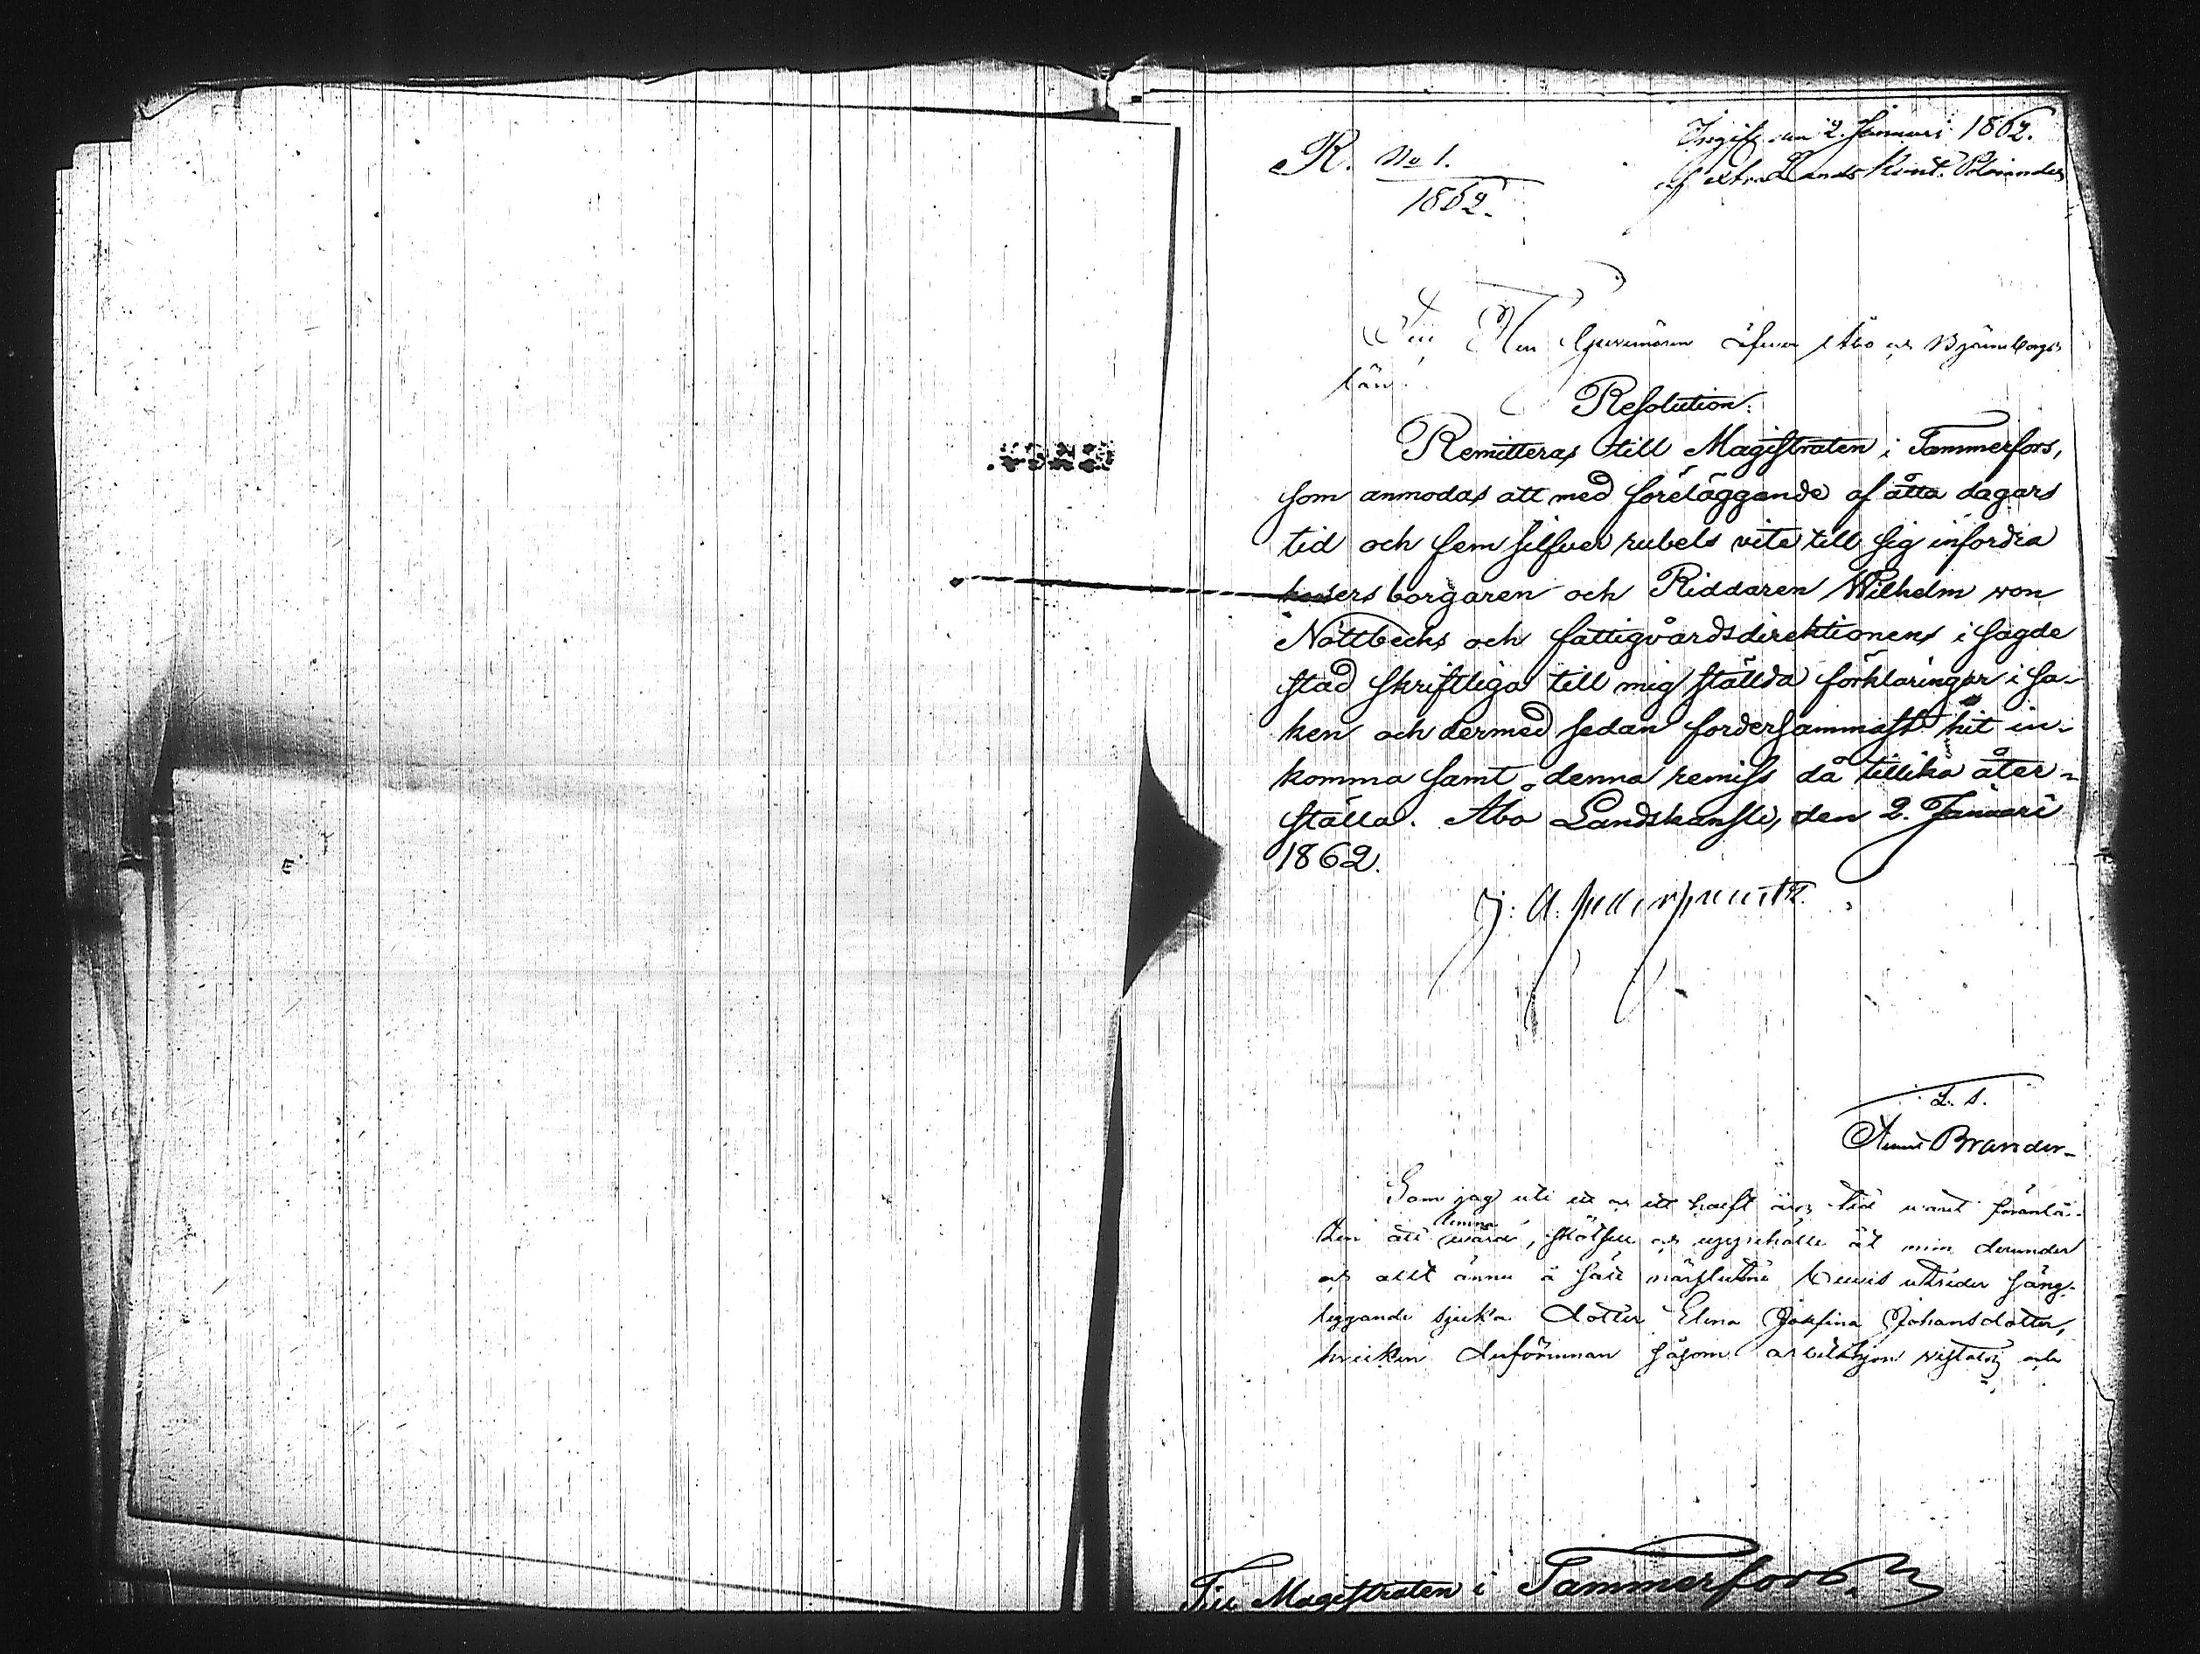 R. No 1.
1862.
Ingift den 2. Januari 1862.
af extra Lands Kont. Polviander
Till Herr Guvernören öfver Åbo och Björneborgs
län.
Resolution:
Remitteras till Magistraten i Tammerfors,
som anmodas att med föreläggande af åtta dagars
tid och fem silfver rubels vite till sig infordra
borgaren och Riddaren Wilhelm von
Nottbecks och fattigvårdsdirektionens i sagde
stad skriftliga till mig ställda förklaringar i sa-
ken och dermed sedan fordersammast hit in-
komma samt denna remiss då tillika åter-
ställa. Åbo Landskansli, den 2. Januari
1862.
L. S.
Brander
Som jag uti ett och ett halft års tid varit föranlå-
ten att lemna vård, skötsel och uppehälle åt min derunder
och allt ännu å bevis utvider säng-
liggande sjuka dotter Elena Josefina Johansdotter,
hvilken derförinnan såsom
Till Magistraten i Tammerfors.